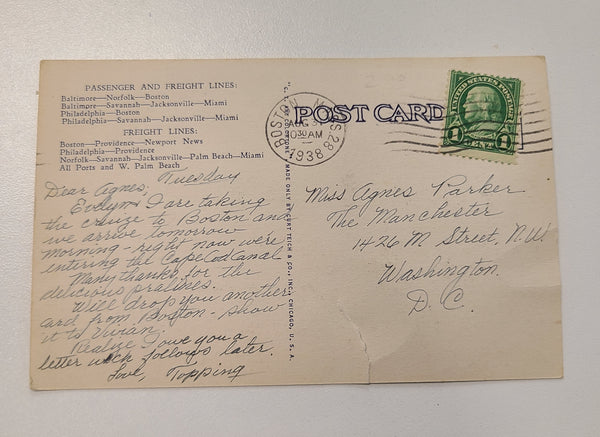 PASSENGER AND FREIGHT LINES:
Baltimore—Norfolk—Boston
Baltimore—Savannah—Jacksonville—Miami
Philadelphia—Boston
Philadelphia—Savannah—Jacksonville—Miami
FREIGHT LINES:
Boston—Providence—Newport News
Philadelphia—Providence
Norfolk—Savannah—Jacksonville—Palm Beach—Miami
All Ports and W. Palm Beach
Tuesday
Dear Agnes;
Evelyn & I are taking
the cruize to Boston and
we arrive tomorrow
morning - right now we're
entering the Cape Cod Canal
Many thanks for the
delicious pralines.
Will drop you another
card from Boston - show
it to Vivian.
Realize I owe you a
letter wich follows later.
Love, Topping
MADE ONLY BY CURT TEICH & CO., INC., CHICAGO, U. S. A.
POST CARD
BOSTON
AUG 3
10 30 AM
1938
UNITED STATES POSTAGE
1 CENT 1
Miss Agnes Parker
The Manchester
1426 M Street, N.W.
Washington
D. C.